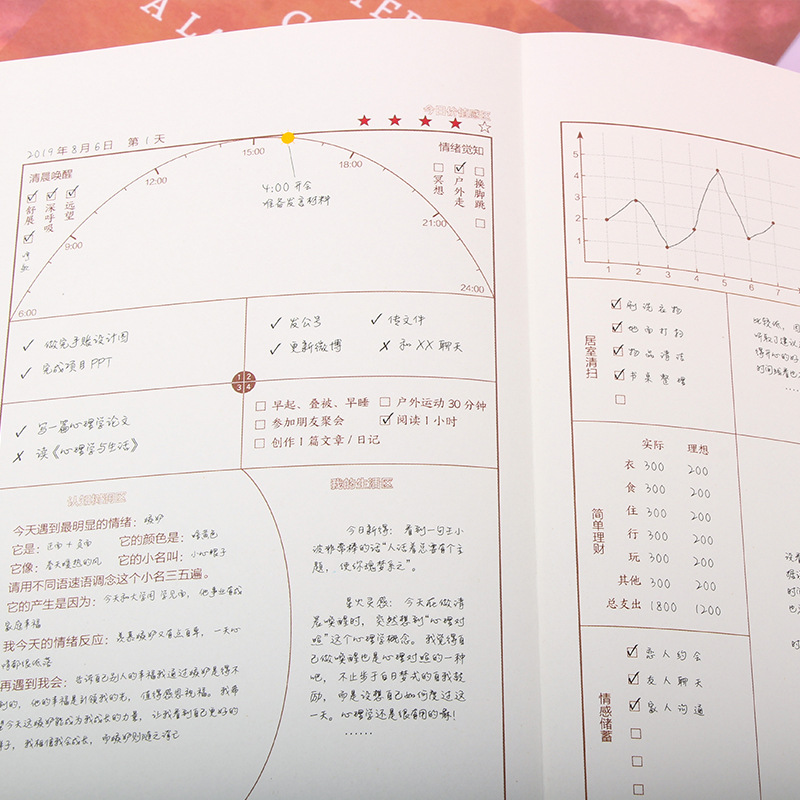 今日价值感区
2019年8月6日 第1天
清晨唤醒
舒展
深呼吸
远望
6:00
9:00
12:00
15:00
18:00
21:00
24:00
4:00 开会
准备发言材料
情绪觉知
冥想
户外走
换脚跳
做完手账设计图
完成项目PPT
发公号
传文件
更新微博
和XX聊天
1 2
3 4
写一篇心理学论文
读《心理学与生活》
早起、叠被、早睡
户外运动30分钟
参加朋友聚会
阅读1小时
创作1篇文章/日记
认知拓展区
今天遇到最明显的情绪：嫉妒
它是：正面+负面 它的颜色是：暗黄色
它像：春天暖热的风 它的小名叫：小心帽子
请用不同语速语调念这个小名三五遍。
它的产生是因为：今天和大学同学见面，他事业有成
家庭幸福
我今天的情绪反应：羡慕嫉妒又有点自卑，一天心
情都很低落
再遇到我会：告诉自己别人的幸福我通过嫉妒是得不
到的，他的幸福是引领我的光，值得感恩祝福。我希
望今天这嫉妒能成为我成长的力量，让我看到自己更好的
样子，我相信我会成长，而嫉妒则随之滑己
我的生活区
今日新得：看到一句王小
波非常棒的话"人活着总要有个主
题，使你魂梦系之"。
星火灵感：今天在做清
晨唤醒时，突然想到"心理对
照"这个心理学概念。我觉得自
己做唤醒也是心理对照的一种
吧，不止步于白日梦式的自我鼓
励，而是设想自己如何度过这
一天。心理学还是很有用的嘛！
……
5
4
3
2
1
1 2 3 4 5 6 7 8
居室清扫
刷洗衣物
地面打扫
物品清洁
书桌整理
简单理财
实际 理想
衣 300 200
食 300 200
住 300 200
行 300 200
玩 300 200
其他 300 200
总支出 1800 1200
情感储蓄
恋人约会
友人聊天
家人沟通